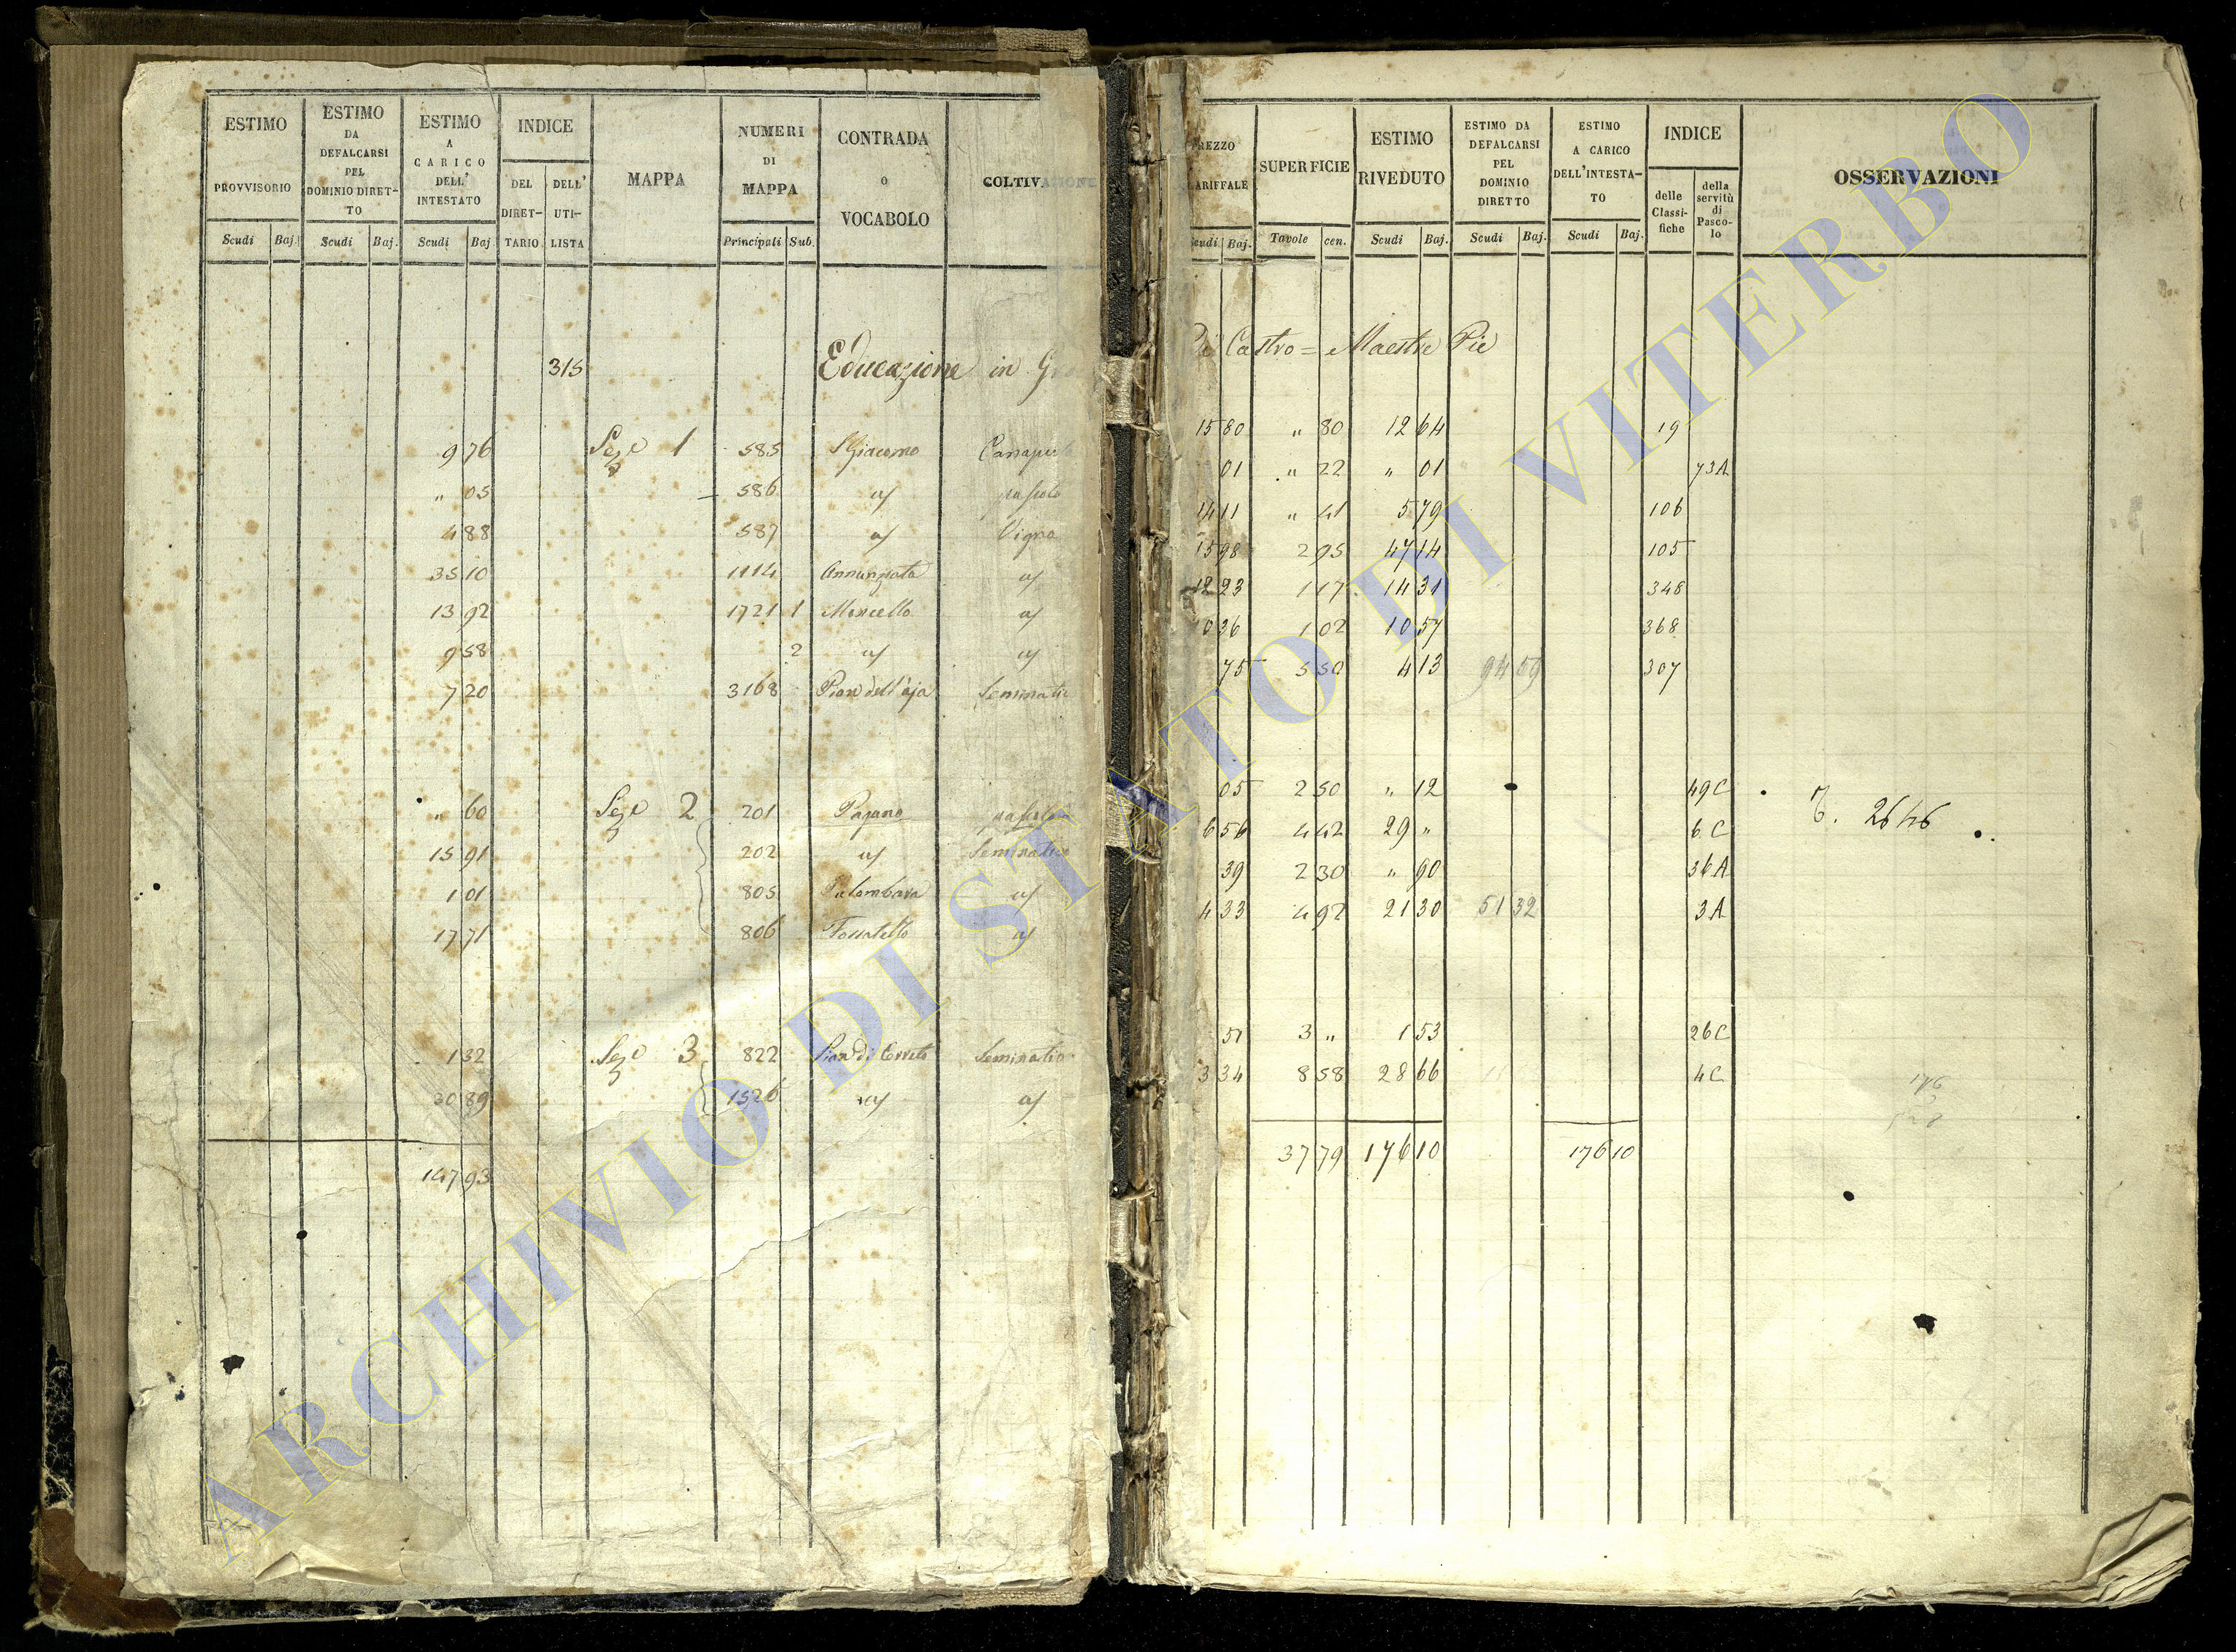 ESTIMO PROVVISORIO
Scudi Baj.
ESTIMO DA DEFALCARSI PEL DOMINIO DIRETTO
Scudi Baj.
ESTIMO A CARICO DELL' INTESTATO
Scudi Baj.
INDICE
DEL DIRET-TARIO
DELL' UTI-LISTA
MAPPA
NUMERI DI MAPPA
Principali Sub.
CONTRADA o VOCABOLO
COLTIVAZIONE
315 Educazione in
9 76 Seze 1 585 S Giacomo
" 05 586 a/ pascolo
4 88 587 a/ Vigna
35 10 1114 Annunziata a/
13 92 1721 1 Moncello a/
9 58 2 a/ a/
7 20 3168 Pian dell'aja Seminativo
" 60 Seze 2 201 Pajano pascolo
15 91 202 a/ Seminativo
1 01 805 Palombara a/
17 71 806 Fossatello a/
1 32 Seze 3 822 Pian di Cerreto Seminativo
30 89 1526 a/ a/
147 93
PREZZO TARIFFALE
Scudi Baj.
SUPERFICIE
Tavole cen.
ESTIMO RIVEDUTO
Scudi Baj.
ESTIMO DA DEFALCARSI PEL DOMINIO DIRETTO
Scudi Baj.
ESTIMO A CARICO DELL'INTESTA-TO
Scudi Baj.
INDICE
delle Classi-fiche
della servitù di Pasco-lo
OSSERVAZIONI
Di Castro = Maestre Pie
15 80 " 80 12 64 19
01 " 22 " 01 73A
14 11 " 41 5 79 106
15 98 2 95 47 14 105
12 23 1 17 14 31 348
10 36 1 02 10 57 368
75 5 50 4 13 94 59 307
05 2 50 " 12 49C
6 56 4 42 29 " 6 C T. 2646
39 2 30 " 90 36A
4 33 4 92 21 30 51 32 3A
51 3 " 1 53 26C
3 34 8 58 28 66 4C
176
37 79 176 10 176 10
ARCHIVIO DI STATO DI VITERBO